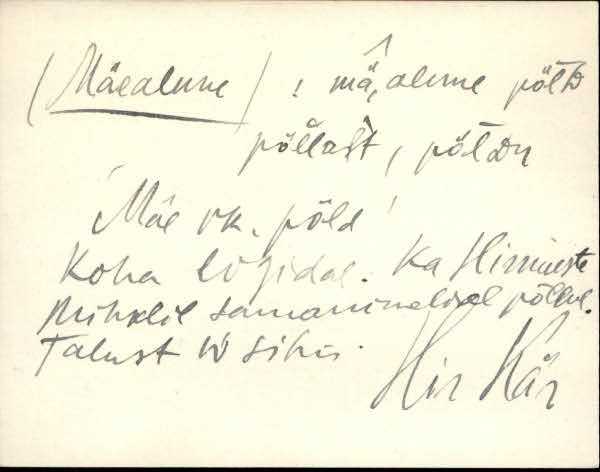 (Mäealune) : mä,alune põlD
põllašt, põlDu
'Mäe ek. põld'
Koha lõ idae. Ka Hinnieste
Mihklil samanimelisel põllul.
Talust W sihis.
Hir Kär